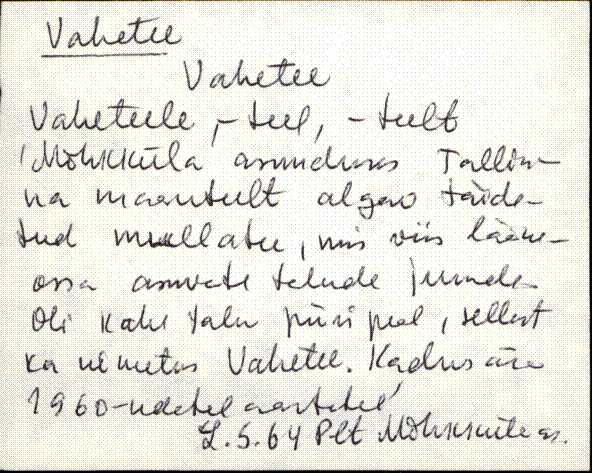 Vahetee
Vahetee
Vaheteele, -teel, -teelt
'Mõhkküla asunduses Tallin-
na maanteelt algav täide-
tud mullatee, mis viis lääne-
ossa asuvate talude juurde.
Oli kahe talu piiri peal, sellest
ka nimetus Vahetee. Kadus ära
1960-ndatel aastatel'
L.S.64 Plt Mõhkküla as.